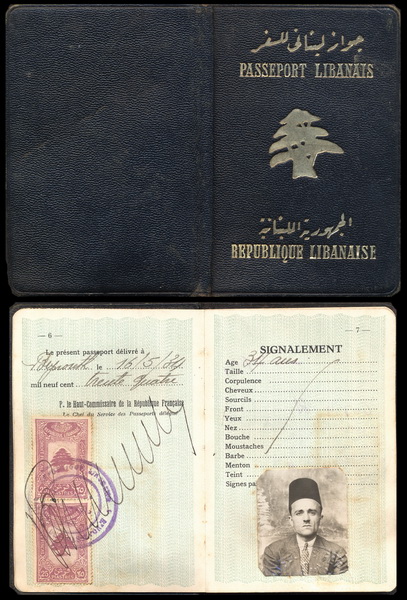 جواز لبناني للسفر
PASSEPORT LIBANAIS
الجمهورية اللبنانية
REPUBLIQUE LIBANAISE
— 6 —
Le présent passeport délivré à
Beyrouth le 16/5/34
mil neuf cent trente quatre
P. le Haut-Commissaire de la République Française
Le Chef du Service des Passeports délégué
— 7 —
SIGNALEMENT
Age 34 ans
Taille
Corpulence
Cheveux
Sourcils
Front
Yeux
Nez
Bouche
Moustaches
Barbe
Menton
Teint
Signes pa